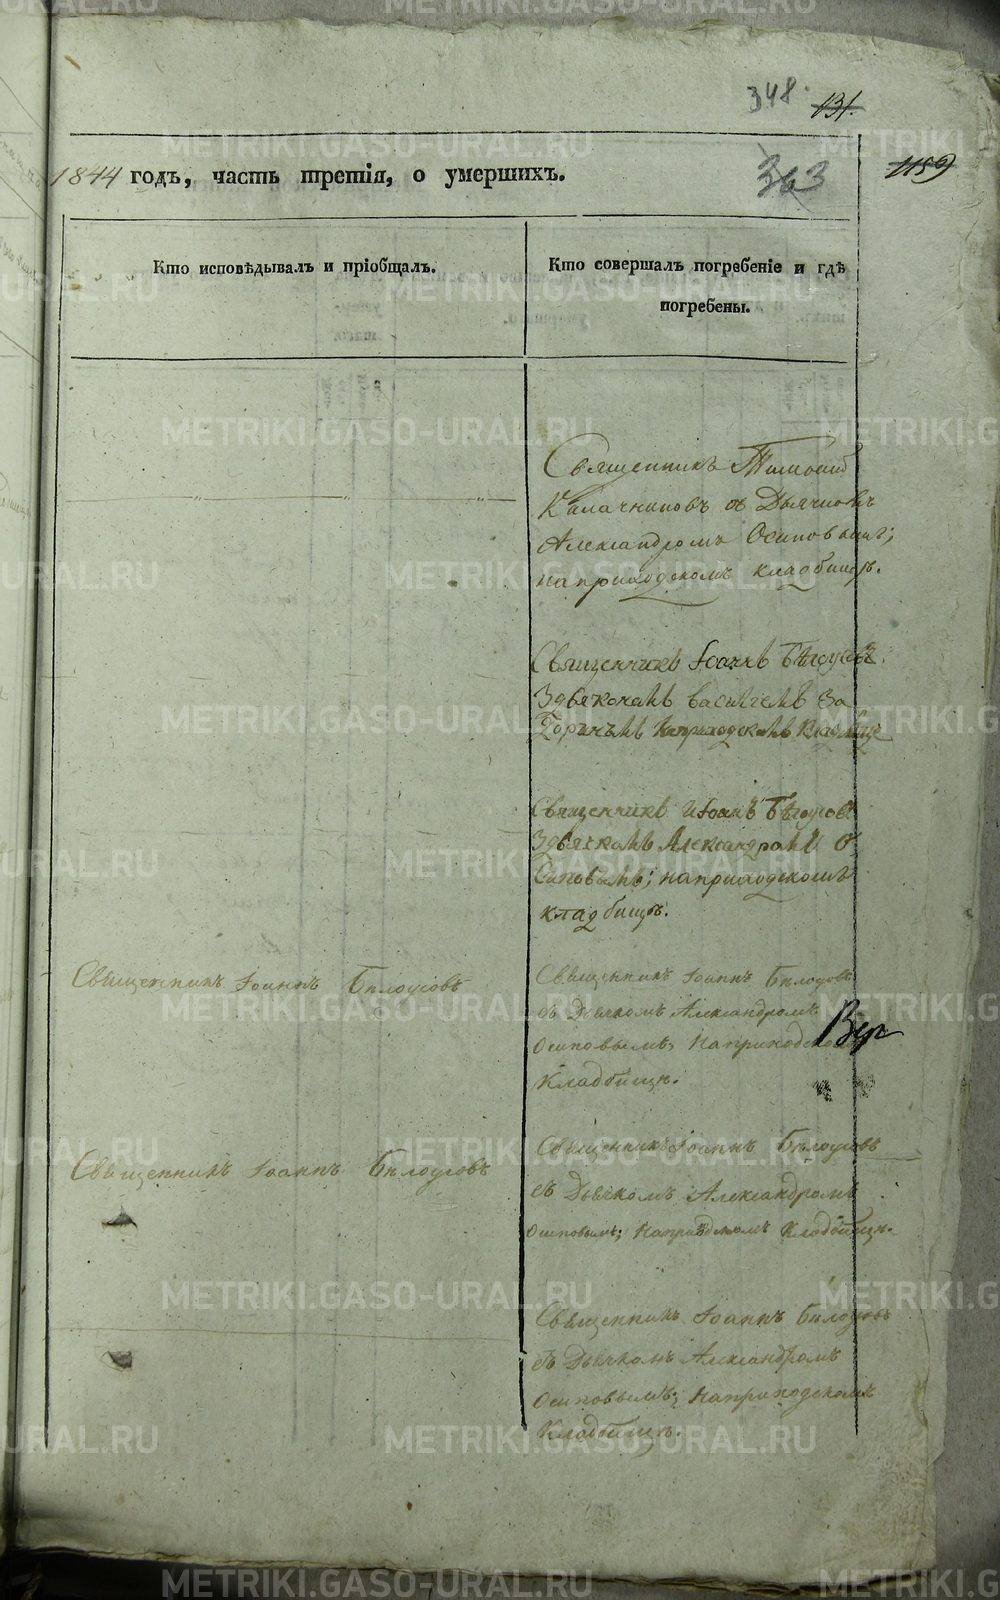 348. 131.
1844 годъ, часть третія, о умершихъ.
363
1159
Кто исповѣдывалъ и пріобщалъ.
Кто совершалъ погребеніе и гдѣ
погребены.
Священникъ Тимофей
Калачниковъ съ Дьячкомъ
Александромъ Осиповымъ;
на приходскомъ кладбищѣ.
Священникъ Іоаннъ Бѣлоусовъ
Здьякономъ Василіемъ За
горнымъ на приходскомъ Кладбище
Священникъ Иоанъ Бѣлоусов
Здьячкомъ Александромъ О
сиповымъ; на приходскомъ
кладбищѣ.
Священникъ Іоаннъ Бѣлоусовъ
Священникъ Іоаннъ Бѣлоусовъ
съ Дьячкомъ Александромъ
Осиповымъ; На приходском
Кладбищѣ.
Вер
Священникъ Іоаннъ Бѣлоусовъ
Священникъ Іоаннъ Бѣлоусовъ
съ Дьячкомъ Александромъ
Осиповымъ; На приходскомъ Кладбищѣ.
Священникъ Іоаннъ Бѣлоусовъ
съ Дьячкомъ Александромъ
Осиповымъ; На приходскомъ
Кладбищѣ.
METRIKI.GASO-URAL.RU